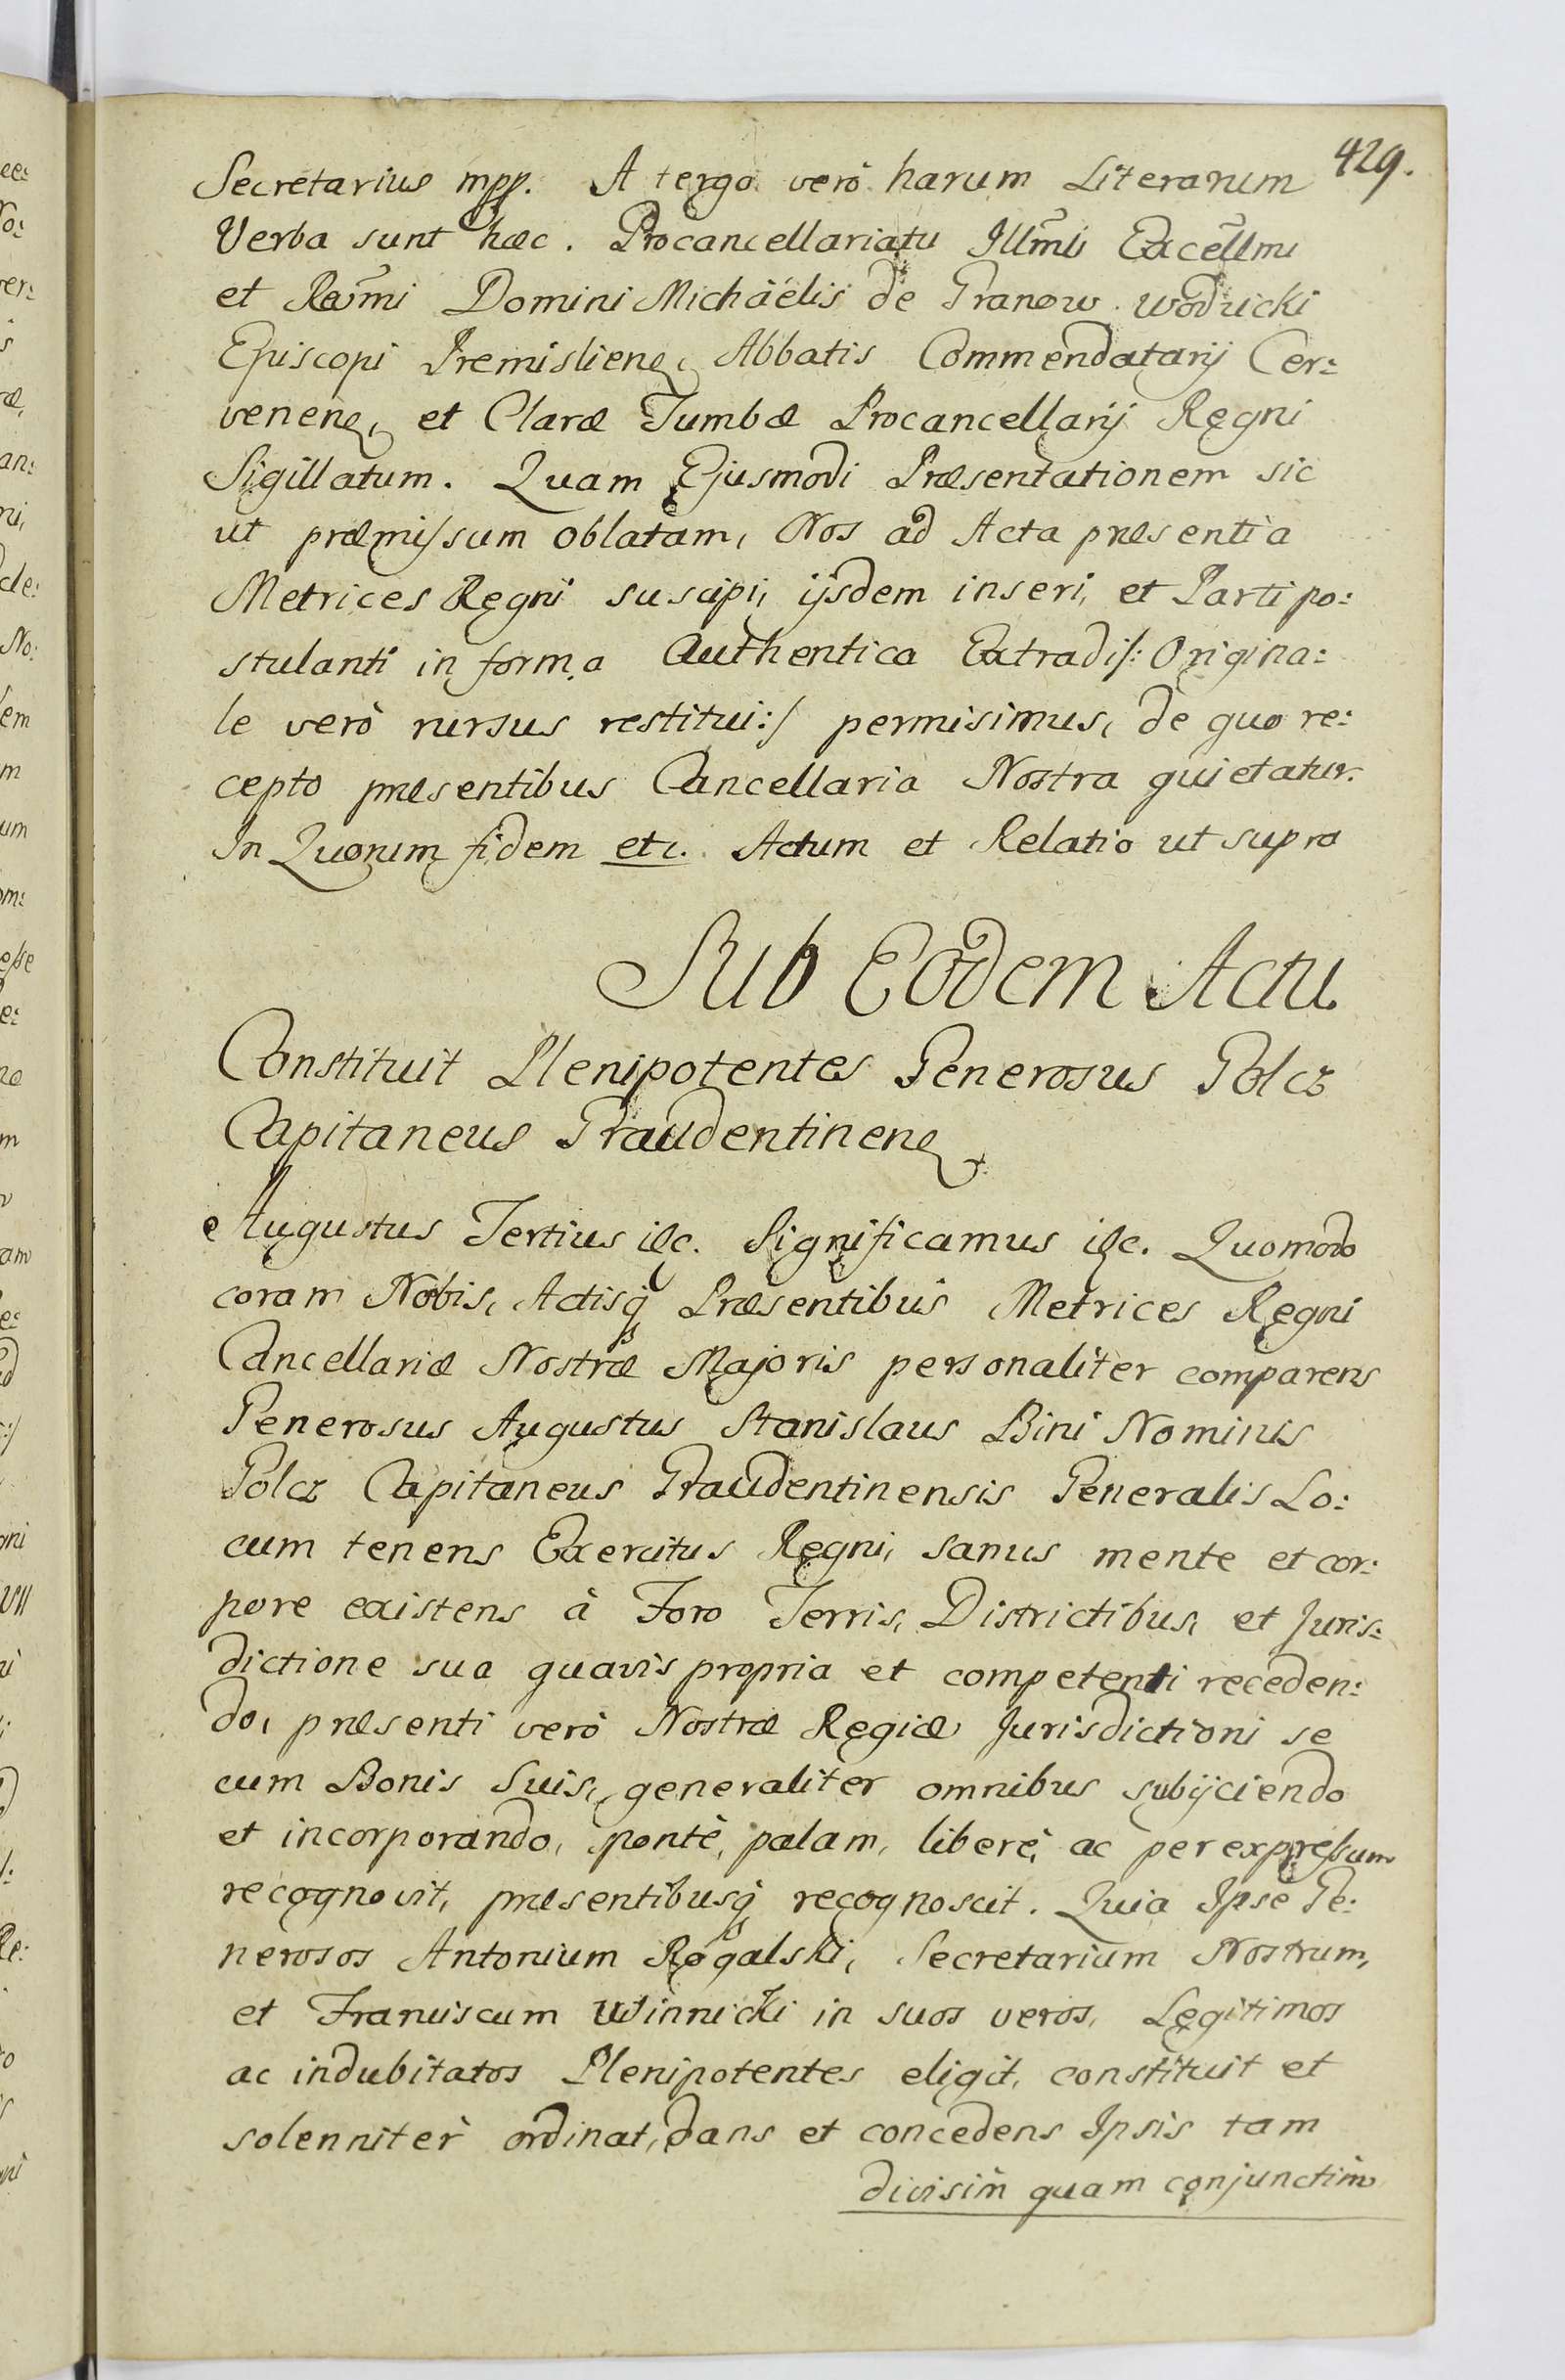 429.
Secretarius mpp. A tergo verò harum Literarum
Verba sunt hæc. Procancellariatu Illm̃i Excellm̃i
et Reṽmi Domini Michäelis de Granow Wodzicki
Episcopi Premislienꝫ, Abbatis Commendatarij Cer:
venenꝫ, et Claræ Tumbæ Procancellarij Regni
Sigillatum. Quam Ejusmodi Præsentationem sic
ut præmissum oblatam, Nos ad Acta præsentia
Metrices Regni suscipi, ijsdem inseri, et Parti po:
stulanti in forma Authentica Extradi/: Origina:
le verò rursus restitui:/ permisimus, de quo re:
cepto præsentibus Cancellaria Nostra quietatur.
In Quorum fidem etc. Actum et Relatio ut supra
Sub Eodem Actu
Constituit Plenipotentes Generosus Golcz
Capitaneus Graudentinenꝫ
Augustus Tertius etc. Significamus etc. Quomodo
coram Nobis, Actisq̃ Præsentibus Metrices Regni
Cancellariæ Nostræ Majoris personaliter comparens
Generosus Augustus Stanislaus Bini Nominis
Golcz Capitaneus Graudentinensis Generalis Lo:
cum tenens Exercitus Regni, sanus mente et cor:
pore existens à Foro Terris, Districtibus, et Juris:
dictione sua quavis propria et competenti receden:
do, præsenti verò Nostræ Regiæ Jurisdictioni se
cum Bonis Suis, generaliter omnibus subijciendo
et incorporando, spontè, palam, liberè, ac per expressum
recognovit, præsentibusq̃ recognoscit. Quia Ipse Ge:
nerosos Antonium Rogalski, Secretarium Nostrum,
et Franciscum Winnicki in suos veros, Legitimos
ac indubitatos Plenipotentes eligit, constituit et
solenniter ordinat, dans et concedens Ipsis tam
divisim quam conjunctim